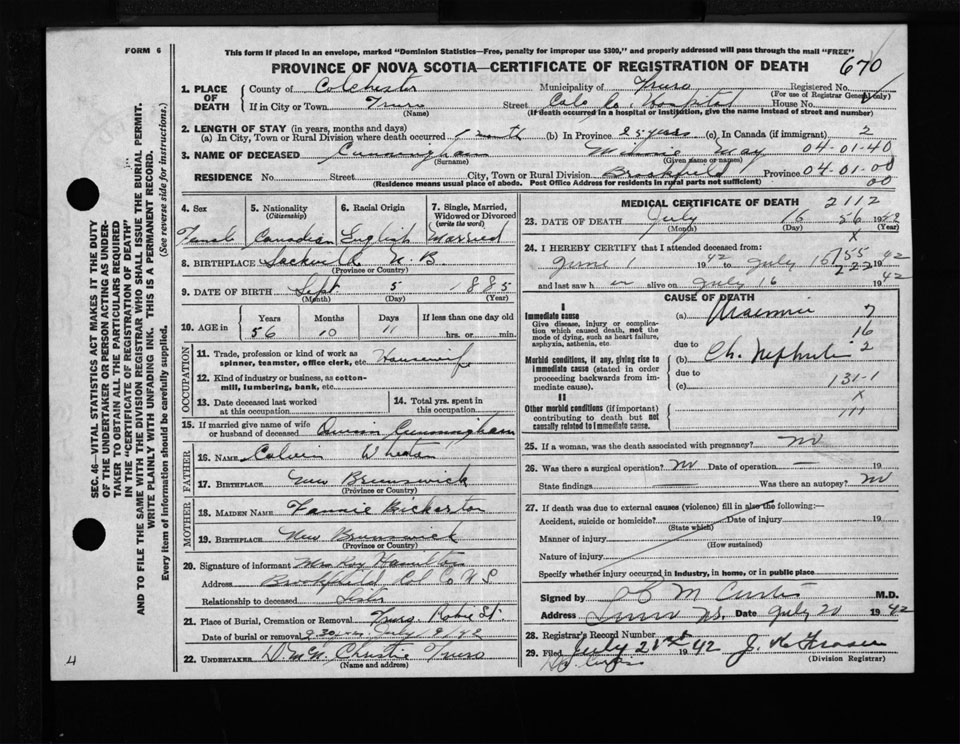 FORM 6
This form if placed in an envelope, marked "Dominion Statistics—Free, penalty for improper use $300," and properly addressed will pass through the mail "FREE"
PROVINCE OF NOVA SCOTIA—CERTIFICATE OF REGISTRATION OF DEATH
670
1. PLACE OF DEATH
County of Colchester Municipality of Truro Registered No.
(For use of Registrar General only)
If in City or Town Truro Street Colc. Co. Hospital House No.
(Name) (If death occurred in a hospital or institution, give the name instead of street and number)
2. LENGTH OF STAY (in years, months and days)
(a) In City, Town or Rural Division where death occurred 1 month (b) In Province 25 years (c) In Canada (if immigrant) 2
3. NAME OF DECEASED Cunningham Minnie May 04-01-40
(Surname) (Given name or names)
RESIDENCE No. Street City, Town or Rural Division Brookfield Province 04-01-00
(Residence means usual place of abode. Post Office Address for residents in rural parts not sufficient) 00
4. Sex 5. Nationality (Citizenship) 6. Racial Origin 7. Single, Married, Widowed or Divorced (write the word)
Female Canadian English Married
8. BIRTHPLACE Sackville N.B.
(Province or Country)
9. DATE OF BIRTH Sept. 5 1885
(Month) (Day) (Year)
10. AGE in Years Months Days If less than one day old
56 10 11 hrs. or min.
OCCUPATION
11. Trade, profession or kind of work as spinner, teamster, office clerk, etc. Housewife
12. Kind of industry or business, as cotton-mill, lumbering, bank, etc.
13. Date deceased last worked at this occupation
14. Total yrs. spent in this occupation
15. If married give name of wife or husband of deceased Cunningham
FATHER
16. NAME Calvin Wheaton
17. BIRTHPLACE New Brunswick
(Province or Country)
MOTHER
18. MAIDEN NAME Fannie Bickerton
19. BIRTHPLACE New Brunswick
(Province or Country)
20. Signature of informant Mrs Roy Hamilton
Address Brookfield Col Co N.S.
Relationship to deceased Sister
21. Place of Burial, Cremation or Removal Truro Robie St.
Date of burial or removal 2.30 pm July 19/42
22. UNDERTAKER Christie Truro
(Name and address)
MEDICAL CERTIFICATE OF DEATH 2112
23. DATE OF DEATH July 16 56 1942
(Month) (Day) (Year)
x
24. I HEREBY CERTIFY that I attended deceased from:
June 1 1942 to July 16 1942
and last saw h er alive on July 16 1942
CAUSE OF DEATH
I
Immediate cause (a) Uraemia 7
Give disease, injury or complication which caused death, not the mode of dying, such as heart failure, asphyxia, asthenia, etc.
due to 16
Morbid conditions, if any, giving rise to immediate cause (stated in order proceeding backwards from immediate cause).
(b) Ch. Nephritis 2
due to
(c) 131-1
II x
Other morbid conditions (if important) contributing to death but not causally related to immediate cause.
111
25. If a woman, was the death associated with pregnancy? no
26. Was there a surgical operation? no Date of operation — 19
State findings Was there an autopsy? no
27. If death was due to external causes (violence) fill in also the following:—
Accident, suicide or homicide? Date of injury 19
(State which)
Manner of injury
(How sustained)
Nature of injury
Specify whether injury occurred in industry, in home, or in public place
Signed by M Curtis M.D.
Address Truro N.S. Date July 20 1942
28. Registrar's Record Number
29. Filed July 21st 1942
(Division Registrar)
SEC. 46—VITAL STATISTICS ACT MAKES IT THE DUTY
OF THE UNDERTAKER OR PERSON ACTING AS UNDER-
TAKER TO OBTAIN ALL THE PARTICULARS REQUIRED
IN THE "CERTIFICATE OF REGISTRATION OF DEATH"
AND TO FILE THE SAME WITH THE DIVISION REGISTRAR WHO SHALL ISSUE THE BURIAL PERMIT.
WRITE PLAINLY WITH UNFADING INK. THIS IS A PERMANENT RECORD.
Every item of information should be carefully supplied. (See reverse side for instructions.)
4